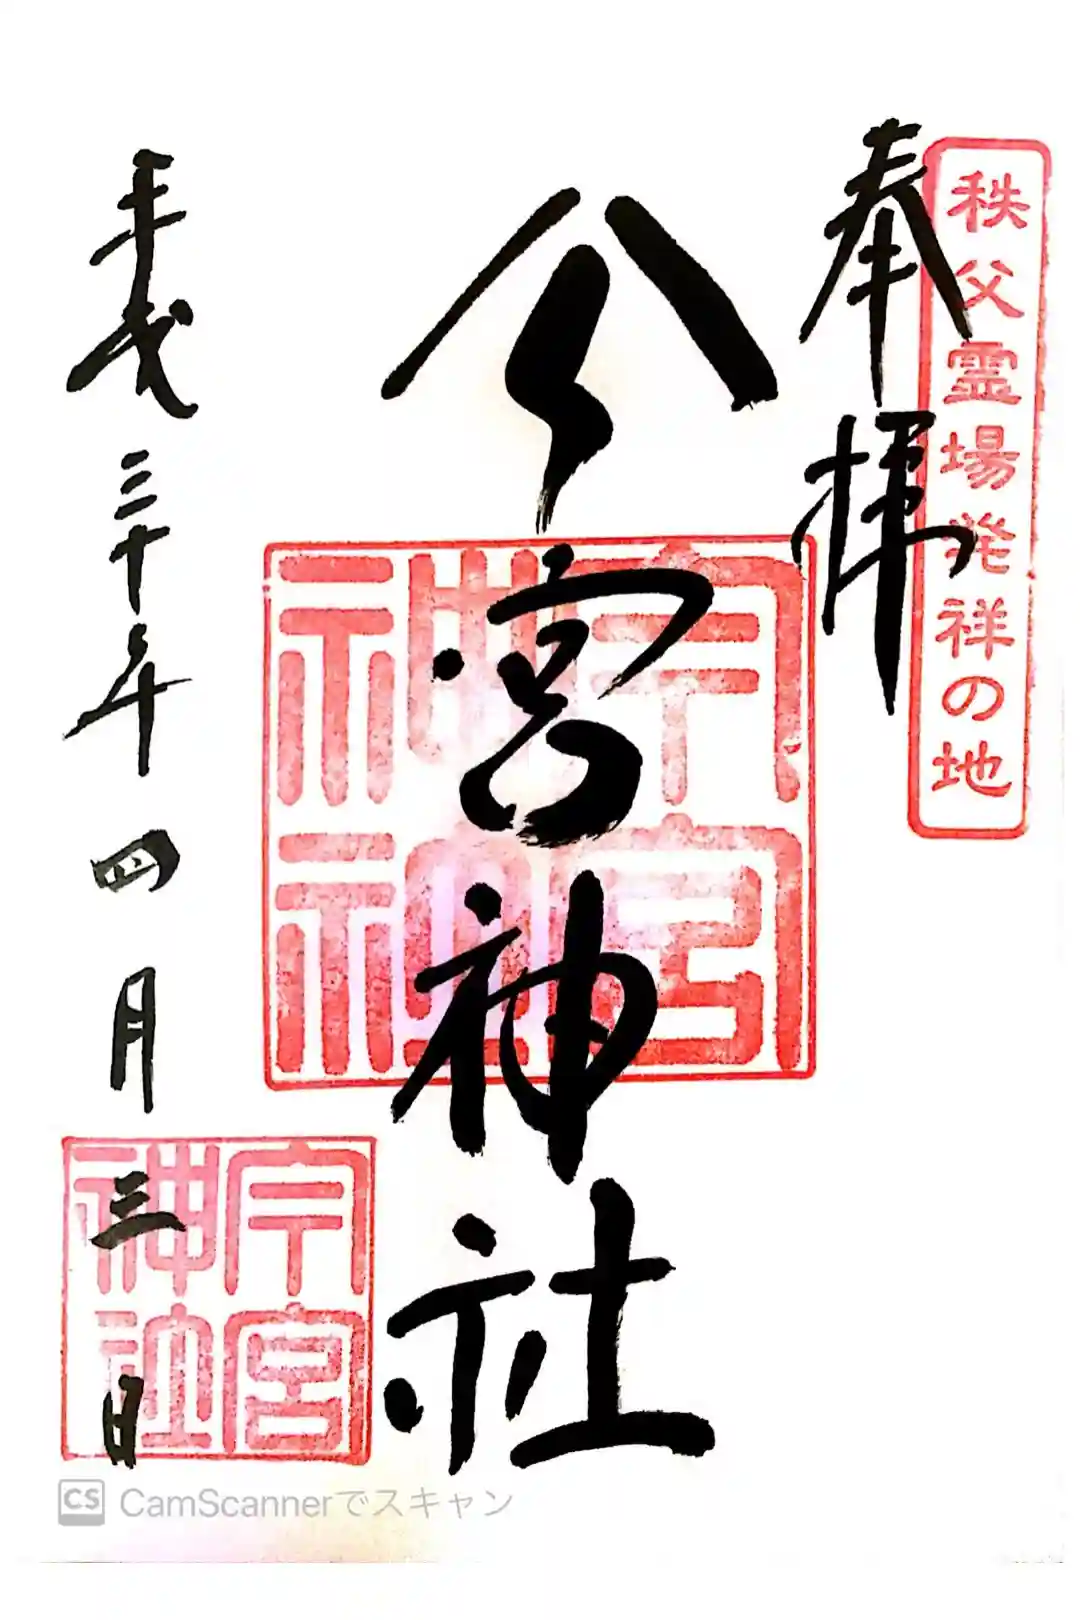 秩父霊場発祥の地
奉拝
今宮神社
今宮神社
平成三十年四月三日
今宮神社
CamScannerでスキャン